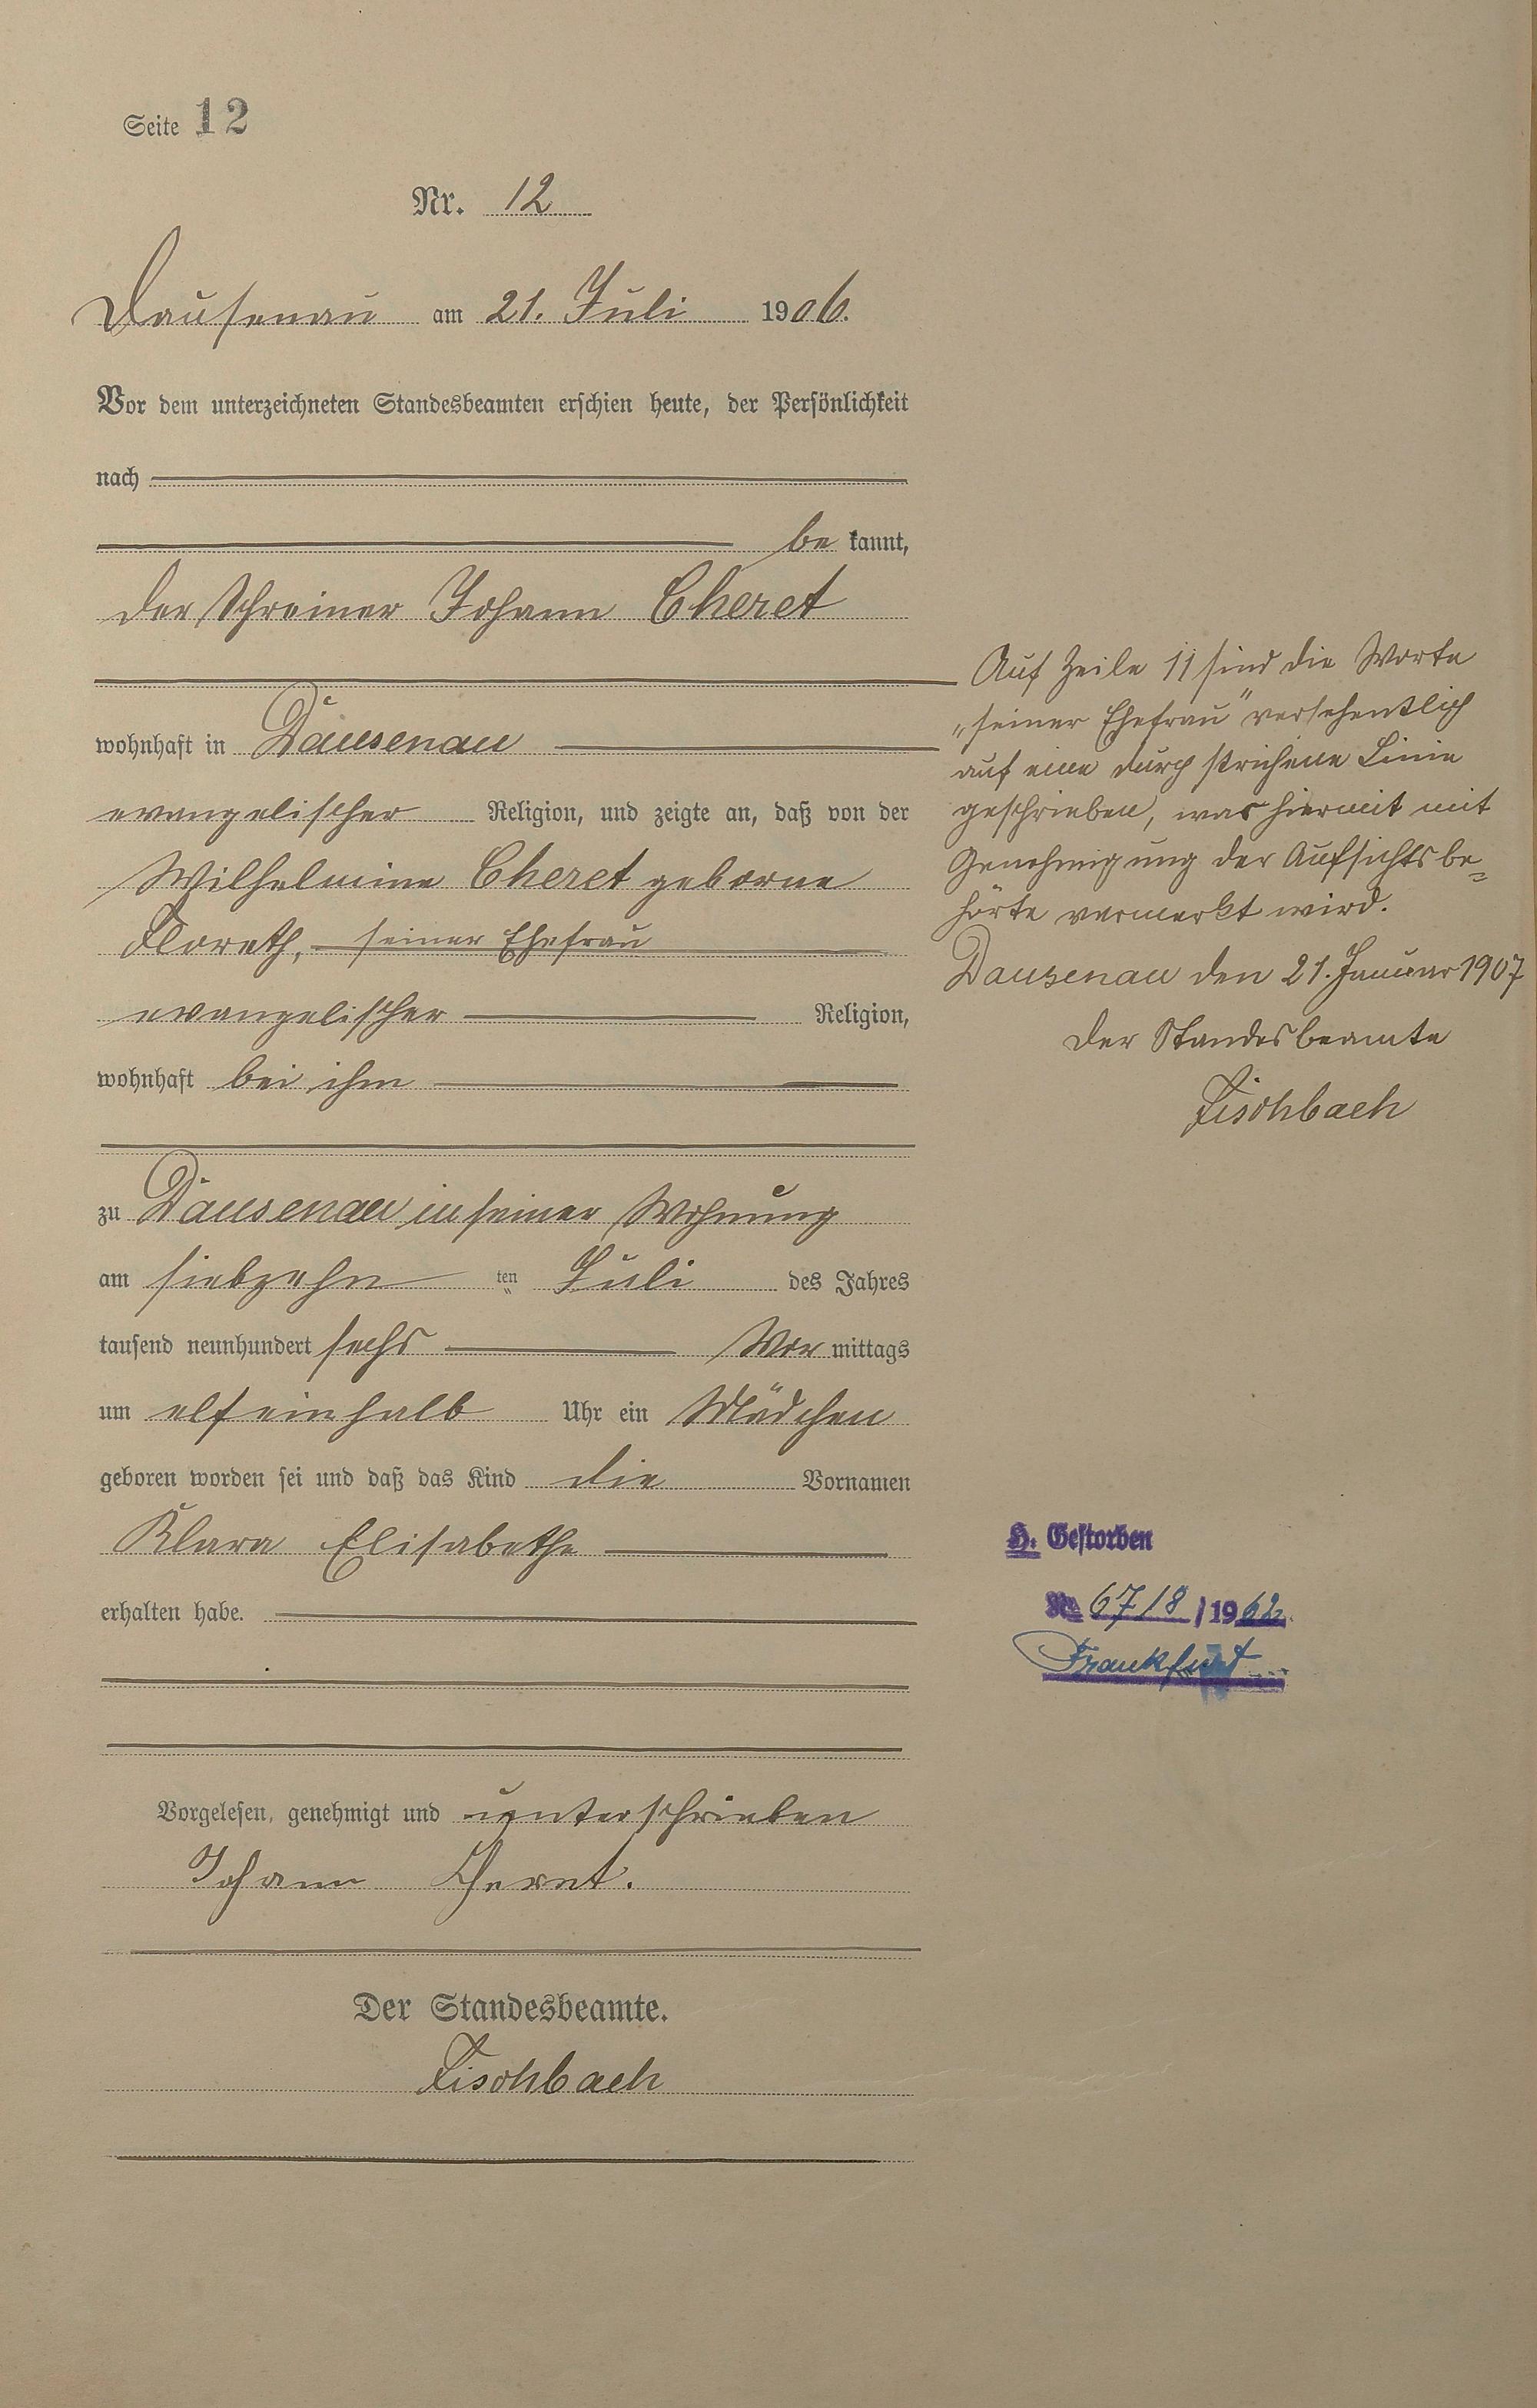 Seite 12
Nr. 12
Dausenau am 21. Juli 1906.
Vor dem unterzeichneten Standesbeamten erschien heute, der Persönlichkeit
nach
be kannt,
der Schreiner Johann Cheret
wohnhaft in Dausenau
evangelischer Religion, und zeigte an, daß von der
Wilhelmine Cheret geborne
Floreth, seiner Ehefrau
evangelischer Religion,
wohnhaft bei ihm
zu Dausenau in seiner Wohnung
am siebzehn ten Juli des Jahres
tausend neunhundert sechs Vor mittags
um elf einhalb Uhr ein Mädchen
geboren worden sei und daß das Kind die Vornamen
Klara Elisabethe
erhalten habe.
Vorgelesen, genehmigt und unterschrieben
Johann Cheret.
Der Standesbeamte.
Fischbach
Auf Zeile 11 sind die Worte
„seiner Ehefrau" versehentlich
auf eine durch strichene Linie
geschrieben, was hiermit mit
Genehmigung der Aufsichtsbe=
hörte vermerkt wird.
Dausenau den 21. Januar 1907
Der Standesbeamte
Fischbach
H. Gestorben
Nr. 6718/1962
Frankfurt